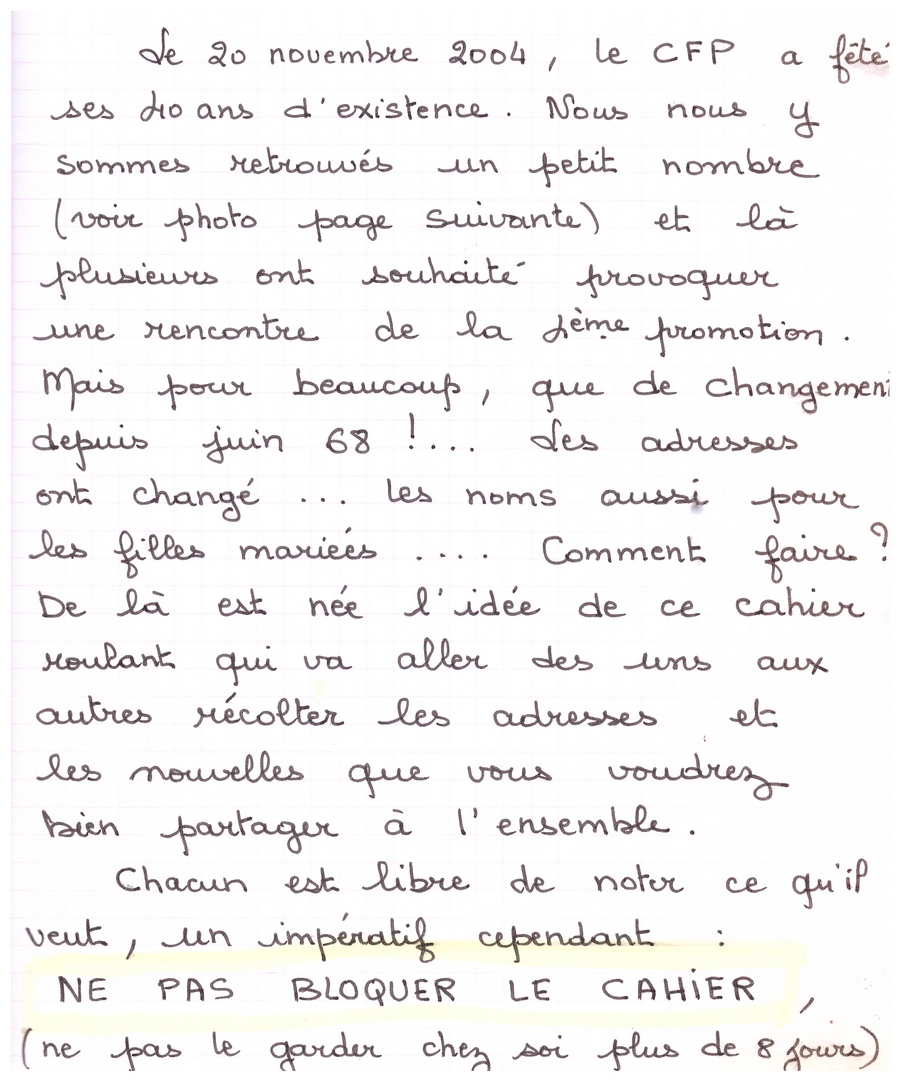 Le 20 novembre 2004, le CFP a fêté
ses 40 ans d'existence. Nous nous y
sommes retrouvés un petit nombre
(voir photo page suivante) et là
plusieurs ont souhaité provoquer
une rencontre de la 1ème promotion.
Mais pour beaucoup, que de changement
depuis juin 68 !... Les adresses
ont changé ... les noms aussi pour
les filles mariées .... Comment faire ?
De là est née l'idée de ce cahier
roulant qui va aller des uns aux
autres récolter les adresses et
les nouvelles que vous voudrez
bien partager à l'ensemble.
Chacun est libre de noter ce qu'il
veut, un impératif cependant :
NE PAS BLOQUER LE CAHIER,
(ne pas le garder chez soi plus de 8 jours)